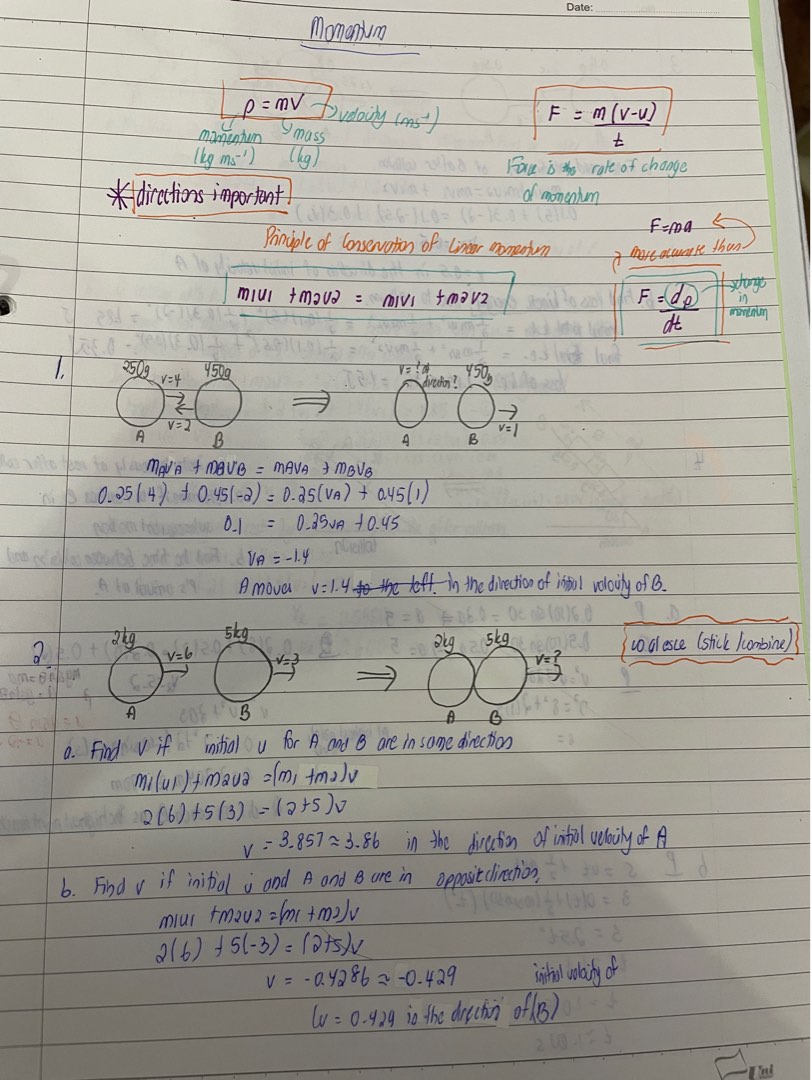 Date:
Momentum
p = mv → velocity (ms⁻¹)
momentum mass
(kg ms⁻¹) (kg)
F = m(v-u)
t
Force is the rate of change
of momentum
* directions important
F=ma
more accurate than
Principle of Conservation of Linear momentum
m1u1 + m2u2 = m1v1 + m2v2
F = dp
dt
change
in
momentum
1.
250g 450g
v=4
v=2
A B
⇒
v=? & direction? 450g
v=1
A B
mAuA + mBuB = mAvA + mBvB
0.25(4) + 0.45(-2) = 0.25(vA) + 0.45(1)
0.1 = 0.25vA + 0.45
vA = -1.4
A moves v=1.4 to the left. in the direction of initial velocity of B.
2.
2kg 5kg
v=6 v=3
A B
⇒
2kg 5kg
v=?
A B
coalesce (stick/combine)
a. Find v if initial u for A and B are in same direction
m1(u1)+m2u2 =(m1 +m2)v
2(6) +5(3) = (2+5)v
v = 3.857 ≈ 3.86 in the direction of initial velocity of A
b. Find v if initial u and A and B are in opposit direction.
m1u1 +m2u2 =(m1 +m2)v
2(6) +5(-3) = (2+5)v
v = -0.4286 ≈ -0.429
initial velocity of
(v = 0.429 in the direction of (B)